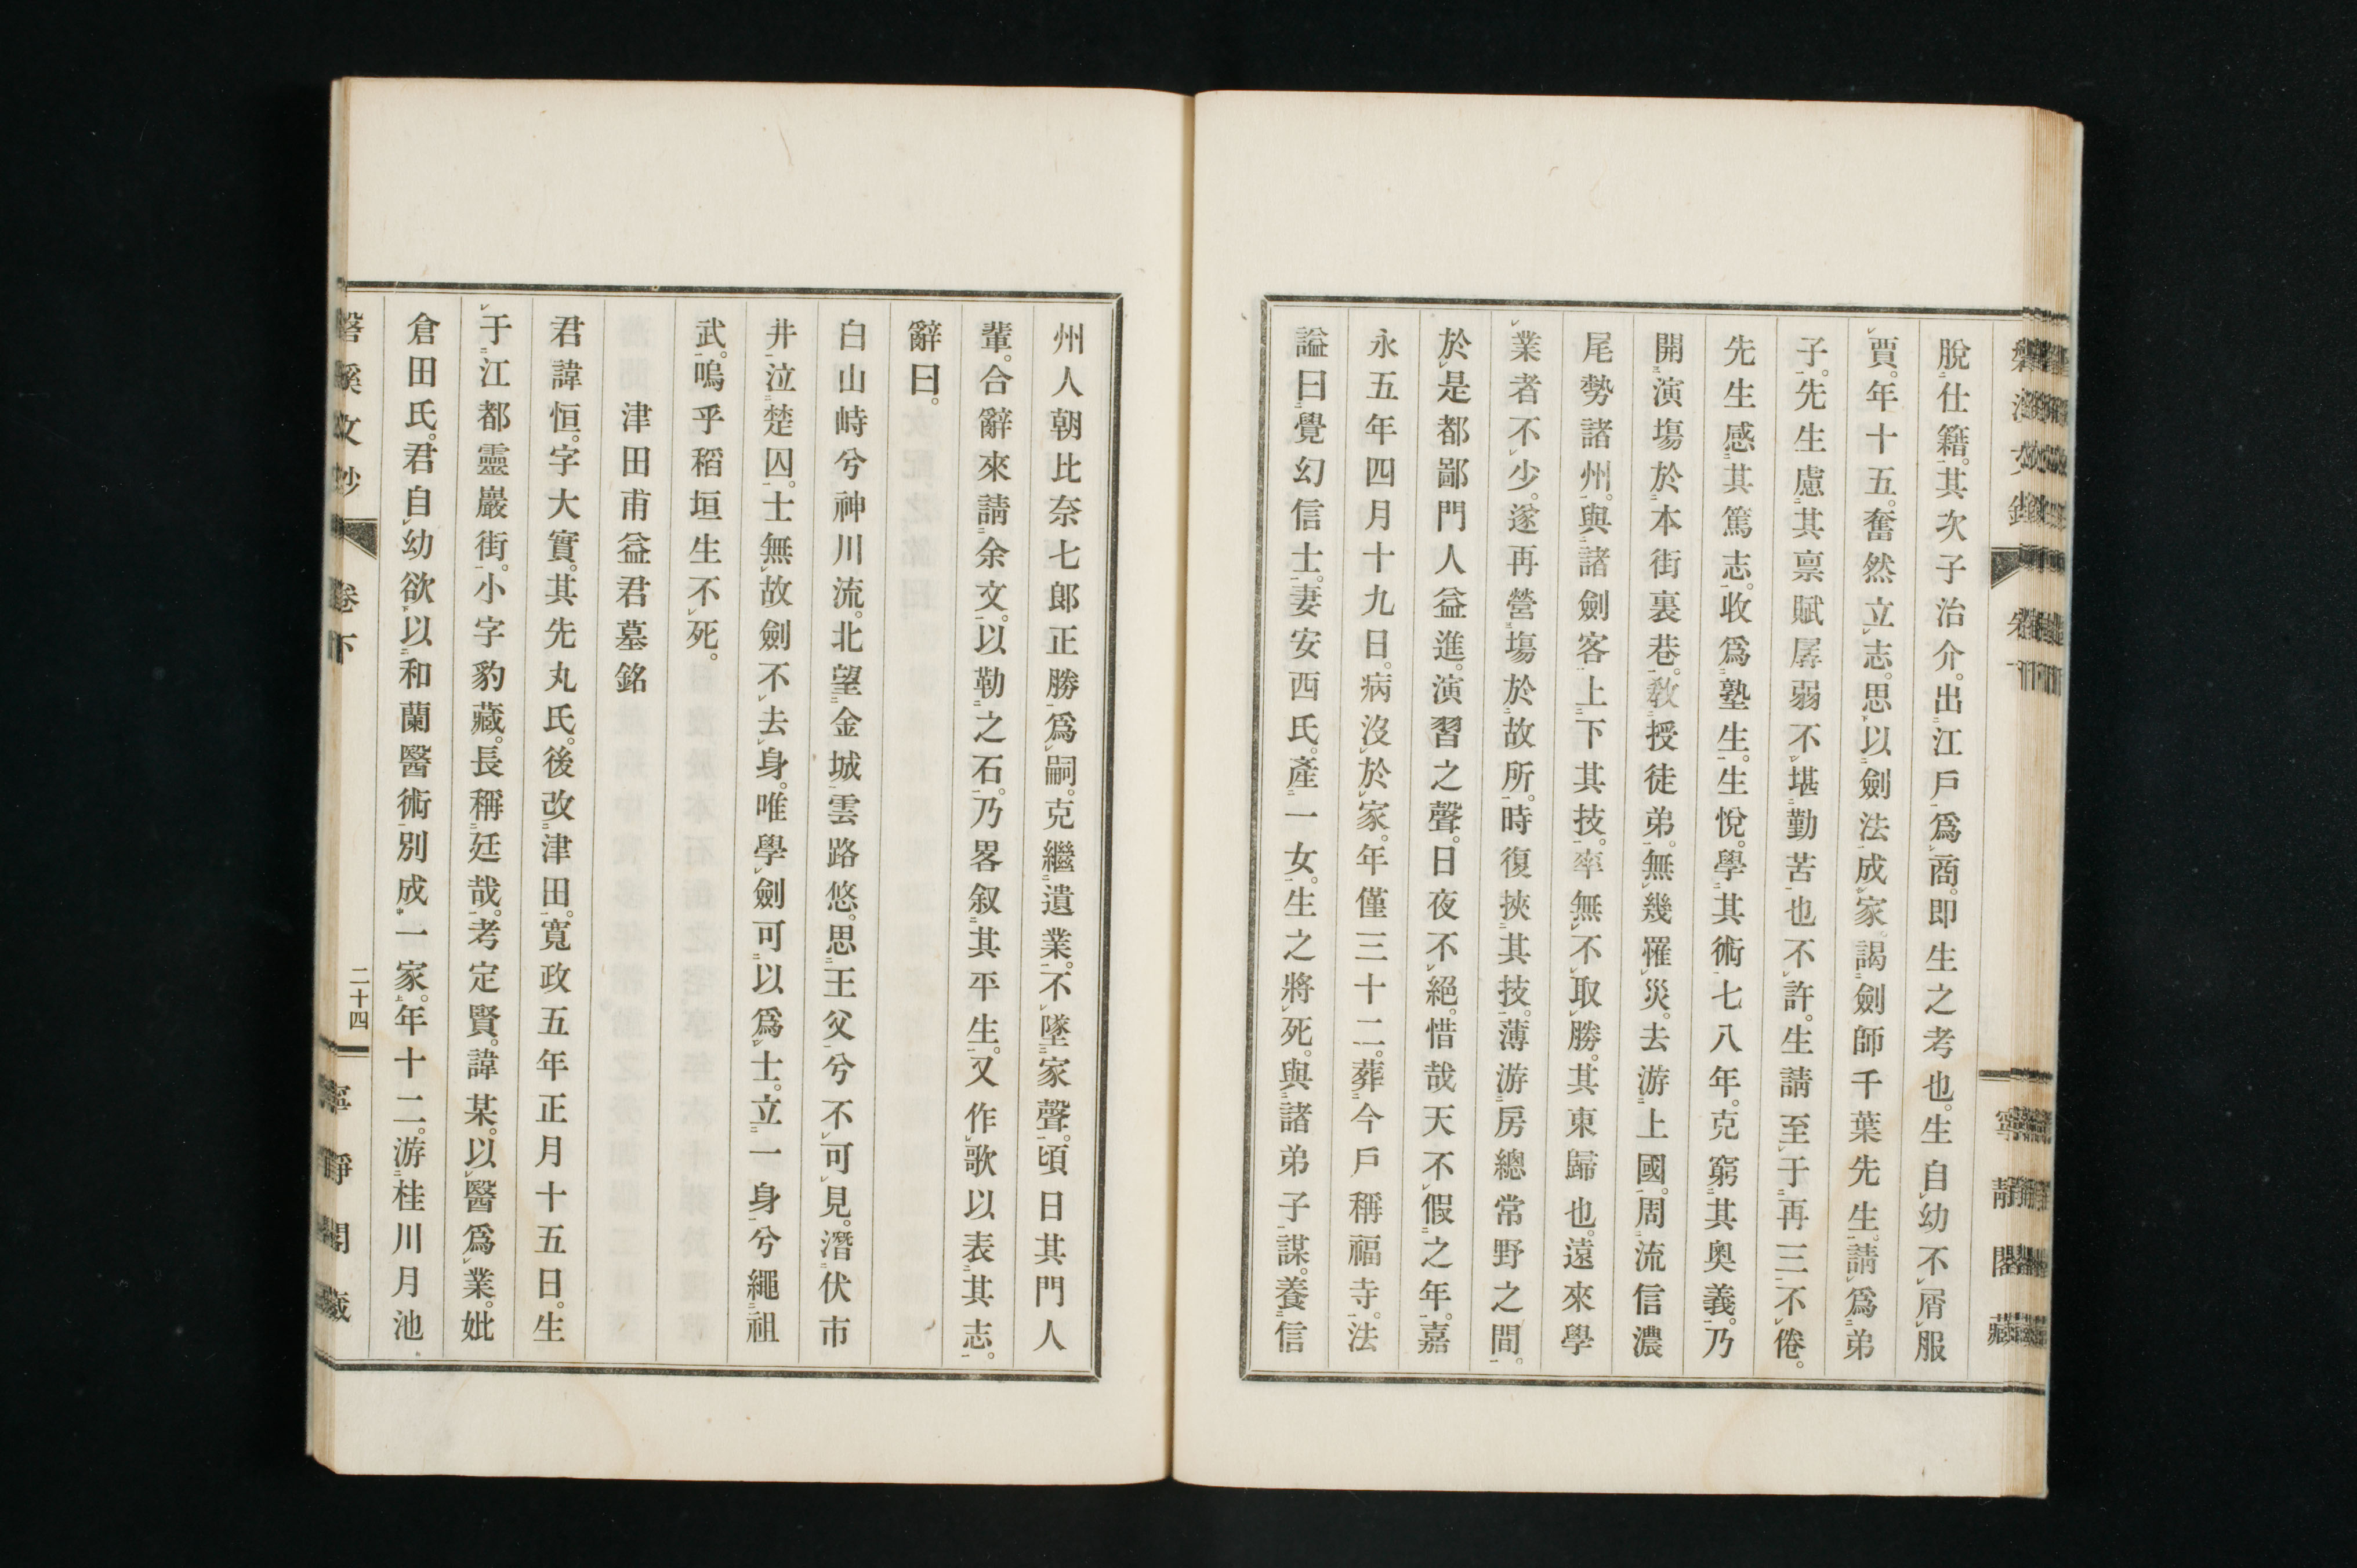 脫仕籍。其次子治介。出江戶爲商。即生之考也。生自幼不屑服
賈。年十五。奮然立志。思以劍法成家。謁劍師千葉先生。請爲弟
子。先生慮其禀賦孱弱不堪勤苦也不許。生請至于再三不倦。
先生感其篤志。收爲塾生。生悅。學其術七八年。克窮其奧義。乃
開演塲於本街裏巷。敎授徒弟。無幾罹災。去游上國。周流信濃
尾勢諸州。與諸劍客上下其技。率無不取勝。其東歸也。遠來學
業者不少。遂再營塲於故所。時復挾其技。薄游房總常野之間。
於是都鄙門人益進。演習之聲。日夜不絕。惜哉天不假之年。嘉
永五年四月十九日。病沒於家。年僅三十二。葬今戶稱福寺。法
謚曰覺幻信士。妻安西氏。產一女。生之將死。與諸弟子謀。養信
州人朝比奈七郎正勝爲嗣。克繼遺業。不墜家聲。頃日其門人
輩。合辭來請余文。以勒之石。乃畧叙其平生。又作歌以表其志。
辭曰。
白山峙兮神川流。北望金城雲路悠。思王父兮不可見。潛伏市
井泣楚囚。士無故劍不去身。唯學劍可以爲士。立一身兮繩祖
武。嗚乎稻垣生不死。
津田甫益君墓銘
君諱恒。字大實。其先丸氏。後改津田。寬政五年正月十五日。生
于江都靈巖街。小字豹藏。長稱廷哉。考定賢。諱某。以醫爲業。妣
倉田氏。君自幼欲以和蘭醫術別成一家。年十二。游桂川月池
磐溪文鈔 卷下 二十四 寧靜閣藏